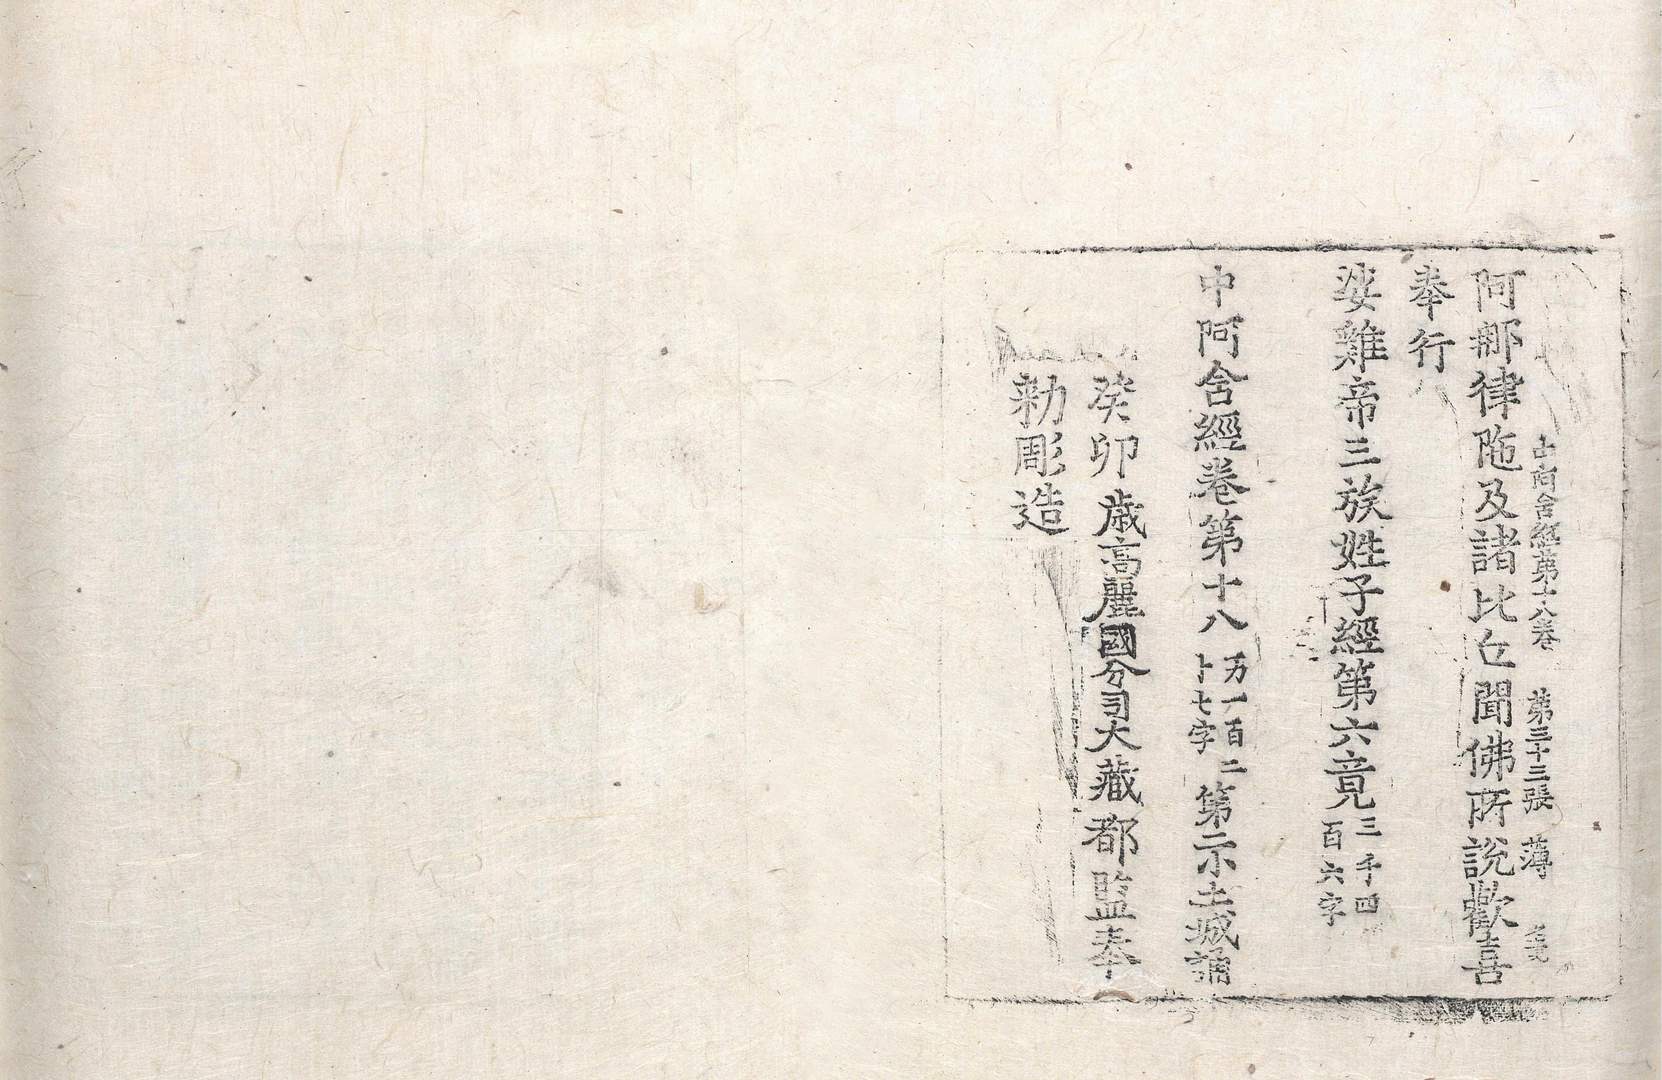 中阿含經第十八卷 第三十三張 薄
阿那律陁及諸比丘聞佛所說歡喜
奉行
娑雞帝三族姓子經第六竟三千四百六字
中阿含經卷第十八万一百二十七字第二小土城誦
癸卯歲高麗國分司大藏都監奉
勑彫造